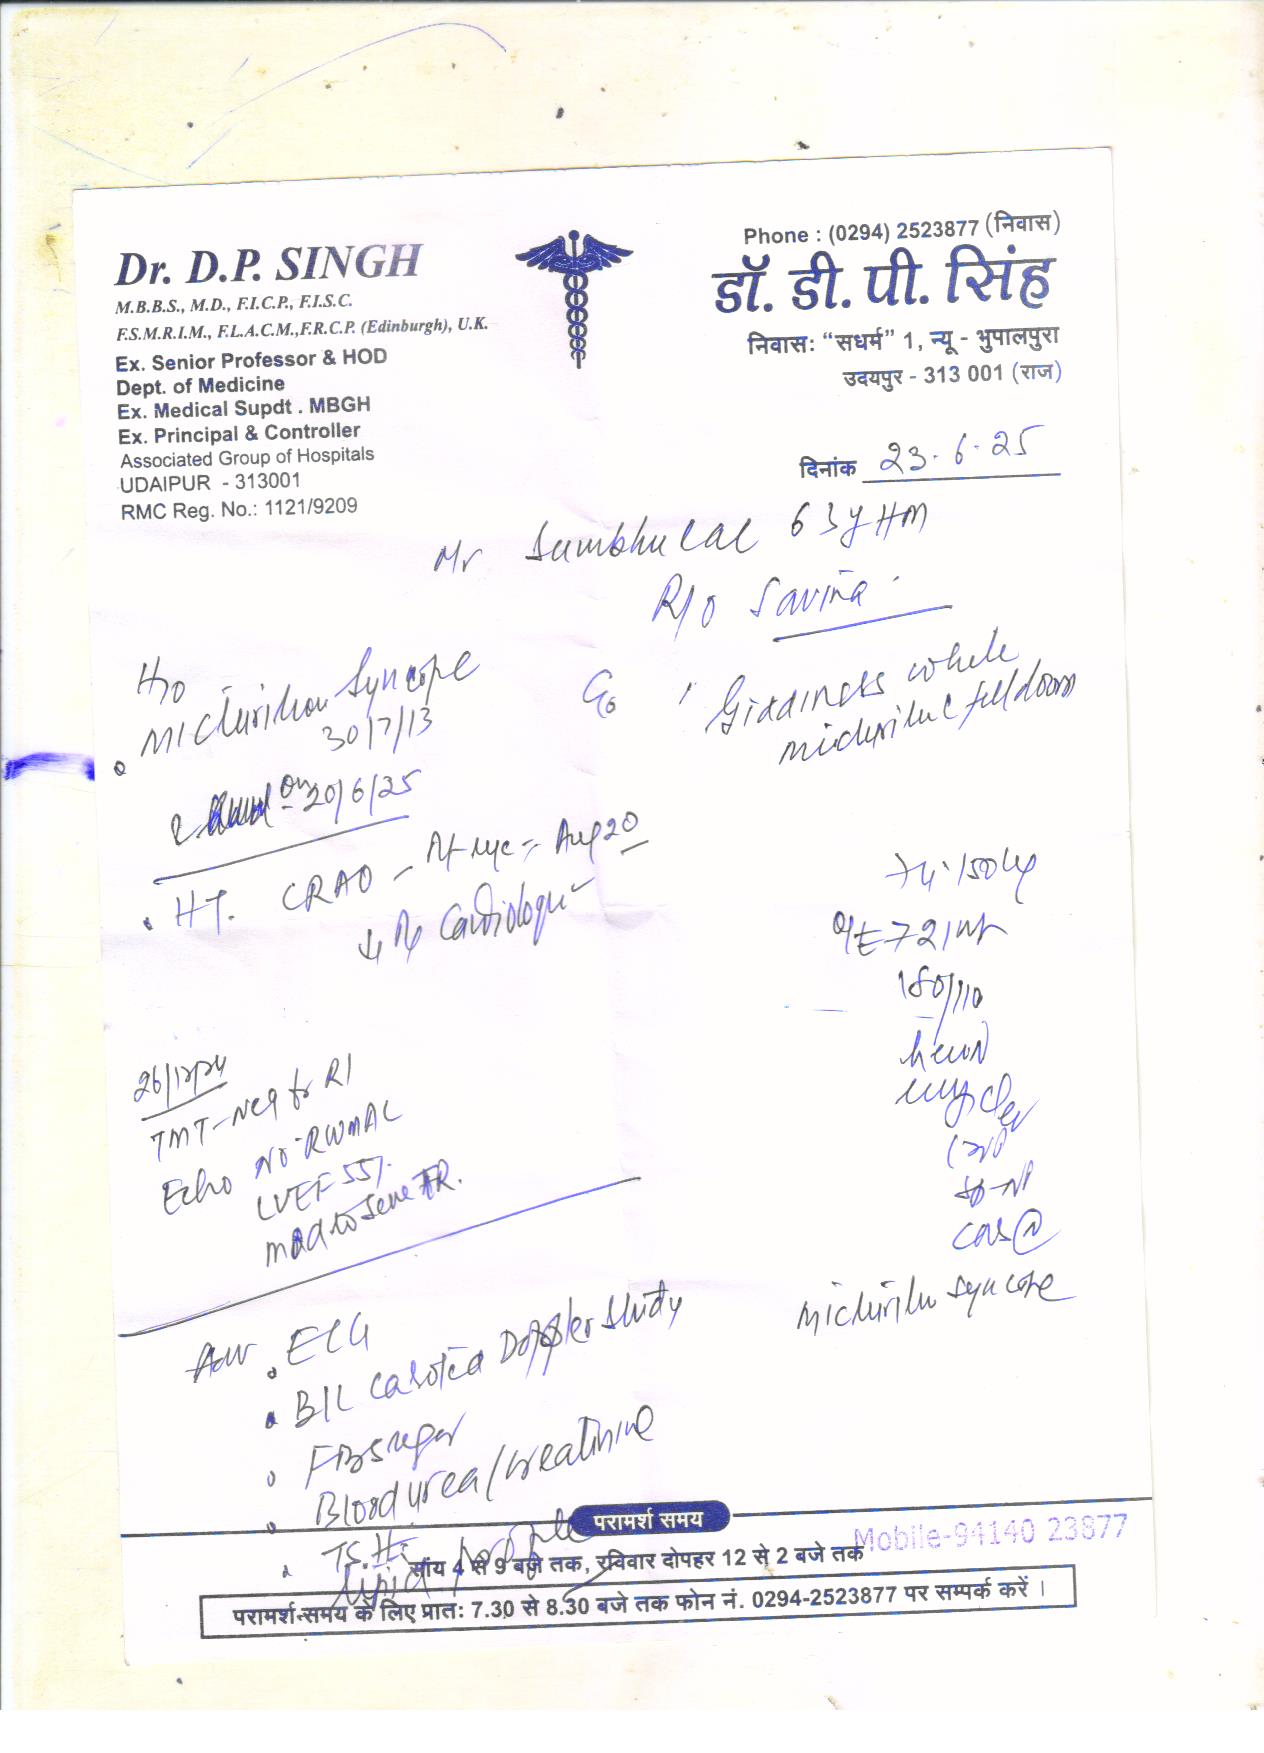 Dr. D.P. SINGH
M.B.B.S., M.D., F.I.C.P., F.I.S.C.
F.S.M.R.I.M., F.L.A.C.M.,F.R.C.P. (Edinburgh), U.K.
Ex. Senior Professor & HOD
Dept. of Medicine
Ex. Medical Supdt . MBGH
Ex. Principal & Controller
Associated Group of Hospitals
UDAIPUR - 313001
RMC Reg. No.: 1121/9209
Phone : (0294) 2523877 (निवास)
डॉ. डी. पी. सिंह
निवास: “सधर्म” 1, न्यू - भुपालपुरा
उदयपुर - 313 001 (राज)
दिनांक 23-6-25
Mr Sambhulal 63y HM
R/o Savina
H/o
Micturition Syncope
30/7/13
on 20/6/25
C/o Giddiness while
micturition & fell down
• HT. CRAO - Aug 20
↓ Rx Cardiologi
O/E 72/m
180/110
26/12/24
TMT - Neg for RI
Echo No RWMA
LVEF 55%
mod to seve TR.
CNS (N)
Micturition syncope
Adv • ECG
• B/L Carotid Doppler study
• F B sugar
• Blood urea/creatinine
• TSH
Lipid profile
परामर्श समय
Mobile-94140 23877
सांय 4 से 9 बजे तक, रविवार दोपहर 12 से 2 बजे तक
परामर्श-समय के लिए प्रात: 7.30 से 8.30 बजे तक फोन नं. 0294-2523877 पर सम्पर्क करें ।